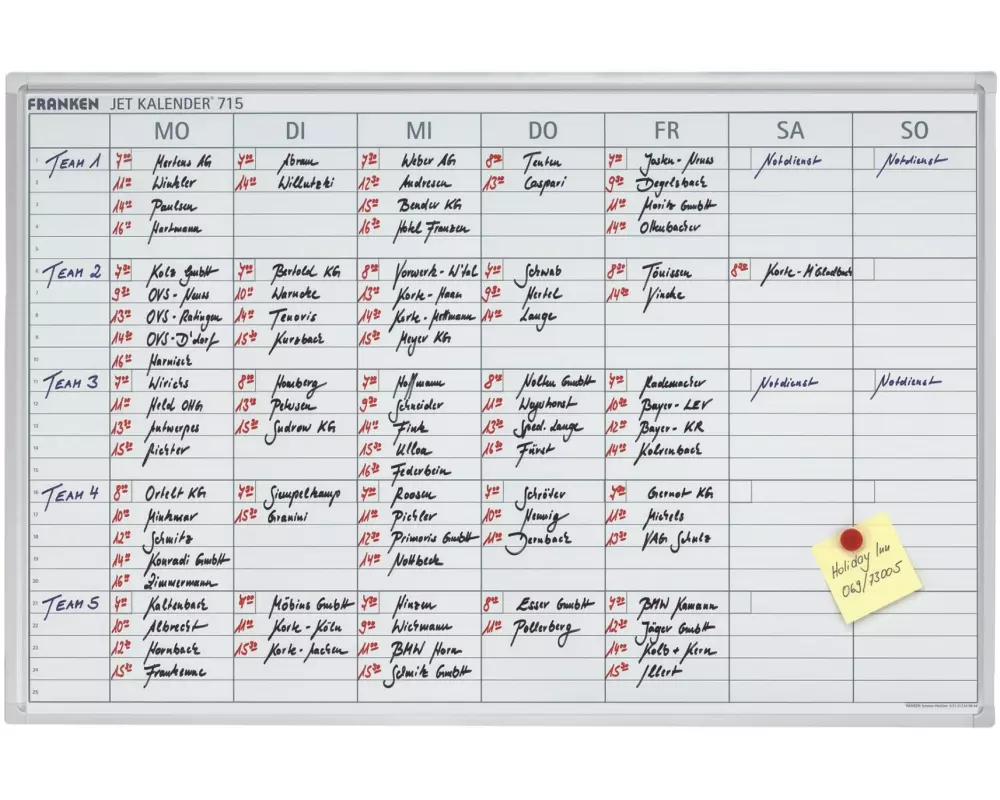 FRANKEN JET KALENDER® 715
MO DI MI DO FR SA SO
1 TEAM 1 7⁰⁰ Mertens AG 7⁰⁰ Abram 7³⁰ Weber AG 8⁰⁰ Tenten 7⁰⁰ Josten-Neuss Notdienst Notdienst
2 11⁰⁰ Winkler 14⁰⁰ Willutzki 12³⁰ Andresen 13⁰⁰ Caspari 9³⁰ Degelsbach
3 14⁰⁰ Paulsen 15⁰⁰ Bender KG 11⁰⁰ Moritz GmbH
4 16⁰⁰ Hartmann 16³⁰ Hotel Franzen 14⁰⁰ Ottenbacher
5
6 TEAM 2 7³⁰ Kolz GmbH 7⁰⁰ Bertold KG 8⁰⁰ Vorwerk-W'tal 7⁰⁰ Schwab 8⁰⁰ Tönissen 8³⁰ Korte-M'Gladbach
7 9³⁰ OVS-Neuss 10⁰⁰ Warncke 13⁰⁰ Korte-Haan 9³⁰ Hertel 14³⁰ Vincke
8 13⁰⁰ OVS-Ratingen 14⁰⁰ Tenovis 14³⁰ Korte-Mettmann 14⁰⁰ Lange
9 14³⁰ OVS-D'dorf 15³⁰ Kurzbach 15³⁰ Meyer KG
10 16⁰⁰ Harnisch
11 TEAM 3 7⁰⁰ Wirichs 8⁰⁰ Homberg 7⁰⁰ Hoffmann 8⁰⁰ Nolten GmbH 7⁰⁰ Rademacher Notdienst Notdienst
12 11⁰⁰ Held OHG 13⁰⁰ Petersen 9³⁰ Schneider 11⁰⁰ Wayshorst 10³⁰ Bayer-LEV
13 13⁰⁰ Antwerpes 15³⁰ Sudrow KG 14⁰⁰ Fink 13³⁰ Sped. Lange 12⁰⁰ Bayer-KR
14 15⁰⁰ Richter 15³⁰ Ulloa 16³⁰ Fürst 14⁰⁰ Kolvenbach
15 16³⁰ Federbein
16 TEAM 4 8⁰⁰ Ortelt KG 7³⁰ Siempelkamp 7⁰⁰ Roosen 7⁰⁰ Schröter 7³⁰ Gernot KG
17 10⁰⁰ Minkmar 15³⁰ Granini 11⁰⁰ Pichler 10⁰⁰ Hennig 11³⁰ Michels
18 12⁰⁰ Schmitz 12³⁰ Primoris GmbH 11⁰⁰ Dernbach 13³⁰ VAG Schulz
19 14⁰⁰ Konradi GmbH 14⁰⁰ Nottbeck
20 16⁰⁰ Zimmermann
21 TEAM 5 7⁰⁰ Kaltenbach 7⁰⁰ Möbius GmbH 7³⁰ Hinzen 8⁰⁰ Esser GmbH 7³⁰ BMW Kamann
22 10⁰⁰ Albrecht 11⁰⁰ Korte-Köln 9⁰⁰ Wichmann 11⁰⁰ Pollerberg 12³⁰ Jäger GmbH
23 12³⁰ Hornbach 15³⁰ Korte-Aachen 11⁰⁰ BMW Horn 14⁰⁰ Kolb + Kern
24 15³⁰ Frankenne 15³⁰ Schmitz GmbH 15³⁰ Illert
25
Holiday Inn
069/73005